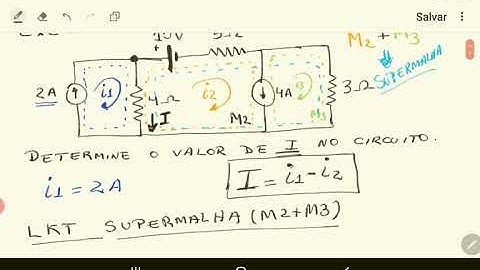 Salvar
10V 5Ω M2 + M3
SUPERMALHA
2A i1 4Ω i2 4A i3 3Ω
I M2 M3
DETERMINE O VALOR DE I NO CIRCUITO.
i1 = 2A I = i1 - i2
LKT SUPERMALHA (M2+M3)